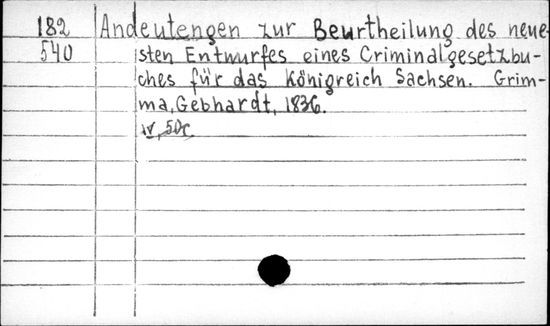 182 Andeutengen zur Beurtheilung des neue-
540 sten Entwurfes eines Criminalgesetzbu-
ches für das Königreich Sachsen. Grim-
ma, Gebhardt, 1836.
IV, 50